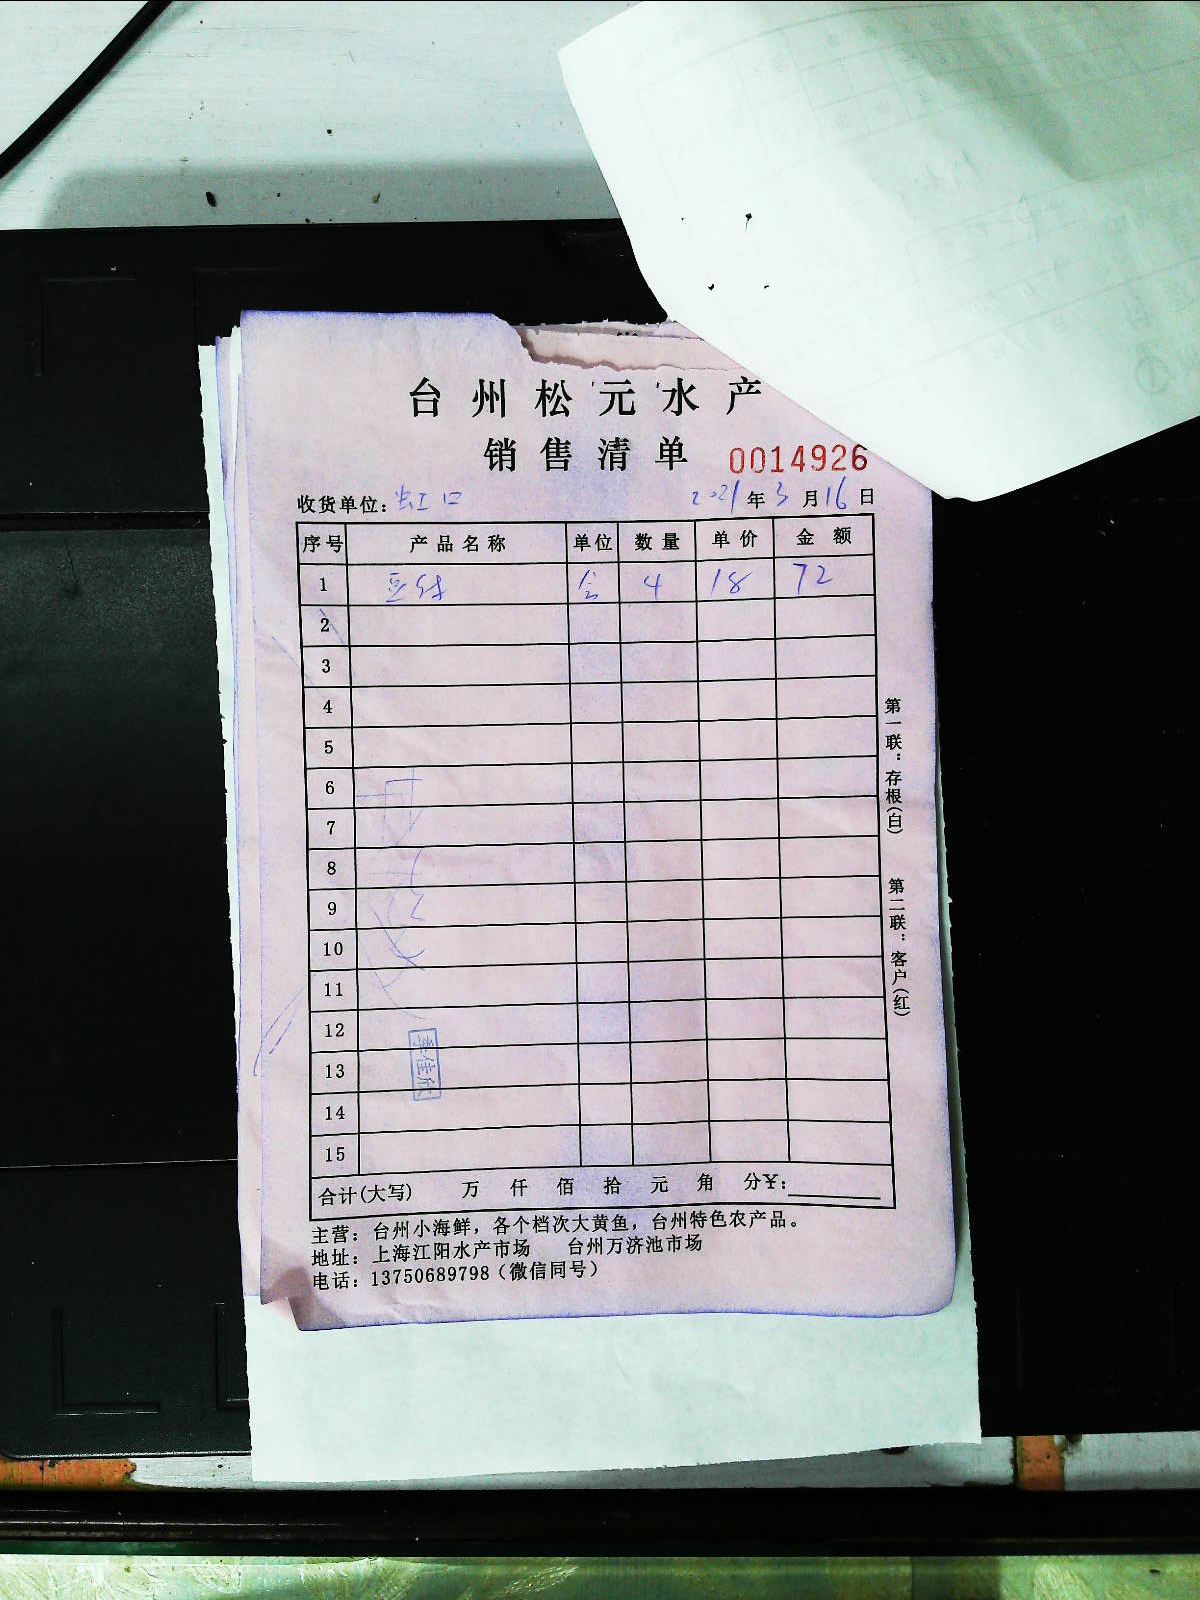 台州松元水产
销售清单 0014926
收货单位：虹口 2021年3月16日
序号 产品名称 单位 数量 单价 金额
1 4 18 72
2
3
4
5
6
7
8
9
10
11
12
13
14
15
合计(大写) 万 仟 佰 拾 元 角 分¥：
主营：台州小海鲜，各个档次大黄鱼，台州特色农产品。
地址：上海江阳水产市场 台州万济池市场
电话：13750689798（微信同号）
第一联：存根(白) 第二联：客户(红)